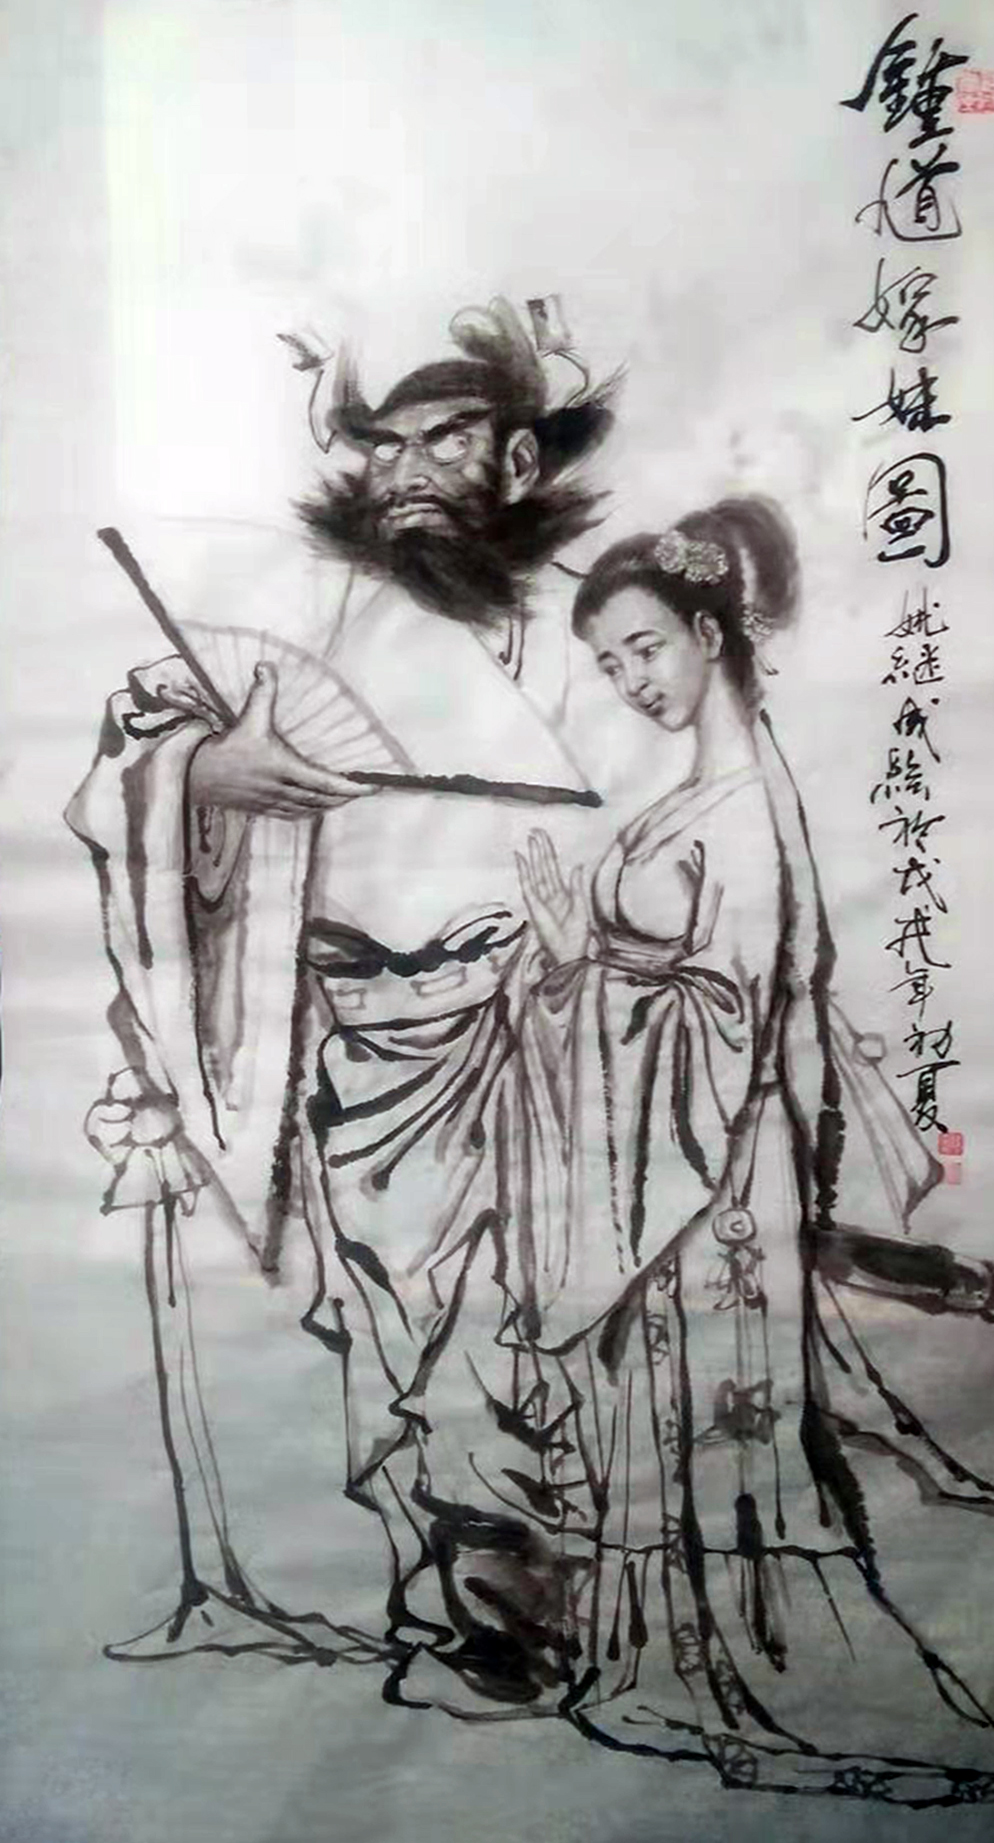 鍾馗嫁妹圖 姚继成繪於戊戌年初夏